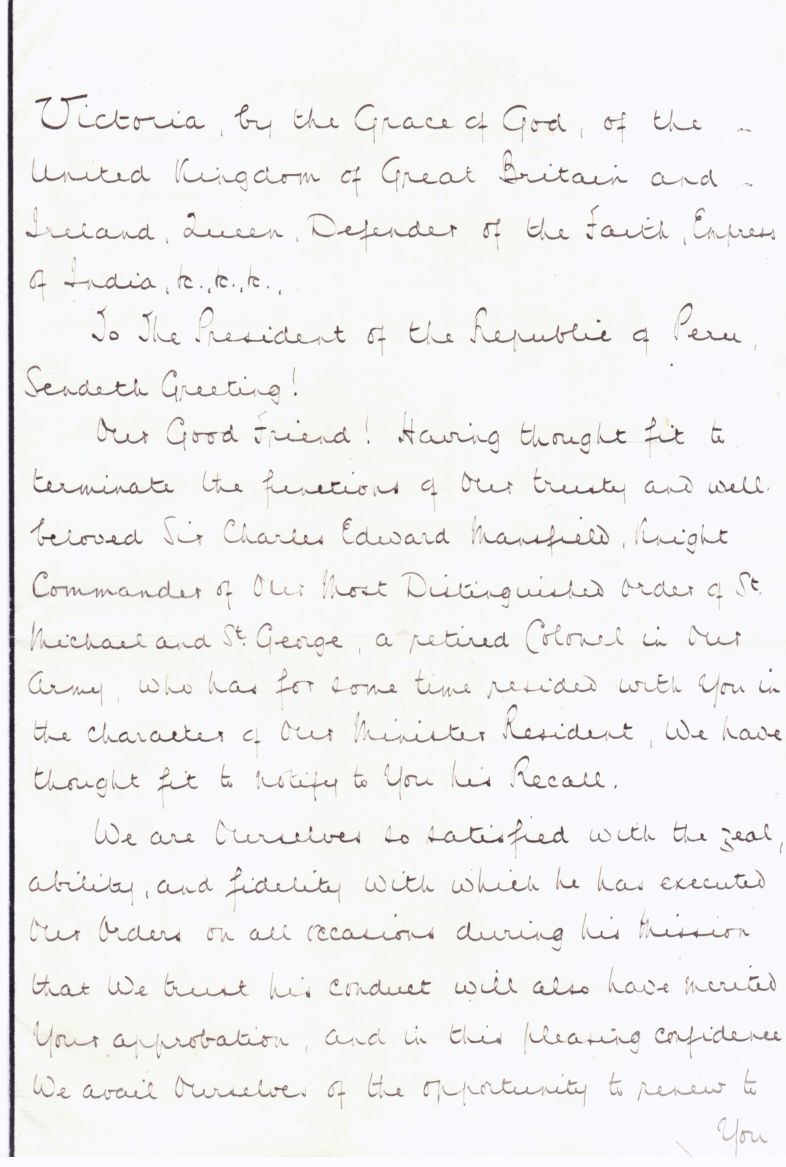 Victoria, by the Grace of God, of the
United Kingdom of Great Britain and
Ireland, Queen, Defender of the Faith, Empress
of India, &c., &c., &c.,
To The President of the Republic of Peru,
Sendeth Greeting!
Our Good Friend! Having thought fit to
terminate the functions of Our trusty and well-
beloved Sir Charles Edward Mansfield, Knight
Commander of Our Most Distinguished Order of St.
Michael and St. George, a retired Colonel in Our
Army, who has for some time resided with You in
the character of Our Minister Resident, We have
thought fit to notify to You his Recall.
We are Ourselves so satisfied with the zeal,
ability, and fidelity with which he has executed
Our Orders on all occasions during his Mission
that We trust his conduct will also have merited
Your approbation, and in this pleasing confidence
We avail Ourselves of the opportunity to renew to
You